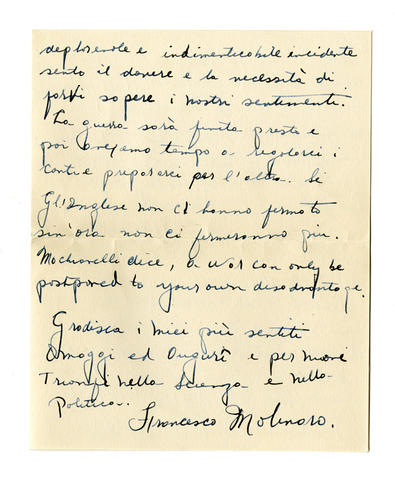 deplorevole e indimenticabile incidente
sento il dovere e la necessità di
farvi sapere i nostri sentimenti.
La guerra sarà finita presto e
poi avremo tempo a regolarci i
conti e prepararci per l'altra. Se
Gl'Inglese non ci hanno fermato
sin'ora non ci fermeranno più.
Machiavelli dice, a war can only be
postponed to your own disadvantage.
Gradisca i miei più sentiti
Omaggi ed Augurî e per nuovi
Trionfi nella Scienza e nella
Politica.
Francesco Molinaro.